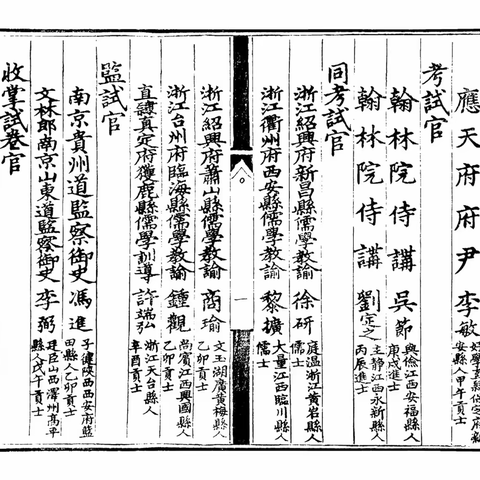 應天府府尹李敏
安縣人甲午貢士
考試官
翰林院侍講吳節
與儉江西安福縣人
庚戌進士
翰林院侍講劉定之
主靜江西永新縣人
丙辰進士
同考試官
浙江紹興府新昌縣儒學教諭徐研
庭溫浙江黃岩縣人
儒士
浙江衢州府西安縣儒學教諭黎擴
大量江西臨川縣人
儒士
一
浙江紹興府蕭山縣儒學教諭商瑜
文玉湖廣黃梅縣人
乙卯貢士
浙江台州府臨海縣儒學教諭鍾觀
尚賓江西興國縣人
乙卯貢士
直隸真定府獲鹿縣儒學訓導許端弘
浙江天台縣人
辛酉貢士
監試官
南京貴州道監察御史馮進
子建陝西西安府藍
田縣人乙卯貢士
文林郎南京山東道監察御史李弼
廷臣山西澤州高平
縣人戊午貢士
收掌試卷官